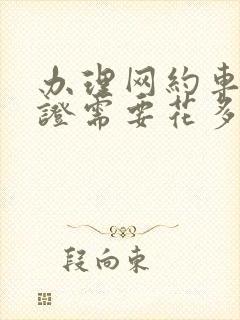 办理网約車
證需要花多
段向東